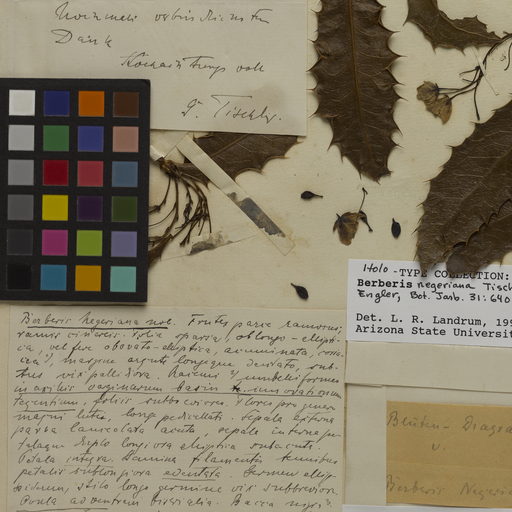 Dank
Hochachtungsvoll
G. Tischler.
Holo-TYPE COLLECTION:
Berberis negeriana Tisch
Engler, Bot. Jarb. 31: 640
Det. L. R. Landrum, 199
Arizona State Universit
Berberis Negeriana nov. Frutex parce ramosus,
ramis cinereis. Folia sparsa, oblongo-ellipti-
ca, vel fere obovato-elliptica, acuminata, coria-
cea, margine argute longeque dentato, sub-
tus vix pallidiora. Racemi umbelliformes
in axillis vaginarum basin
tegentium, foliis subbreviores. Flores pro genere
magni lutei, longe pedicellati. Sepala externa
parva lanceolata acuta, sepala interna
duplo longiora elliptica subacuta.
Petala integra. Stamina filamentis tenuibus
petalis sublongiora edentata. Germen ellip-
soideum, stilo longo germine vix subbreviore.
Ovula ad ventrem biserialia. Bacca nigra
Blüten-Diagra
u.
Berberis Negeria